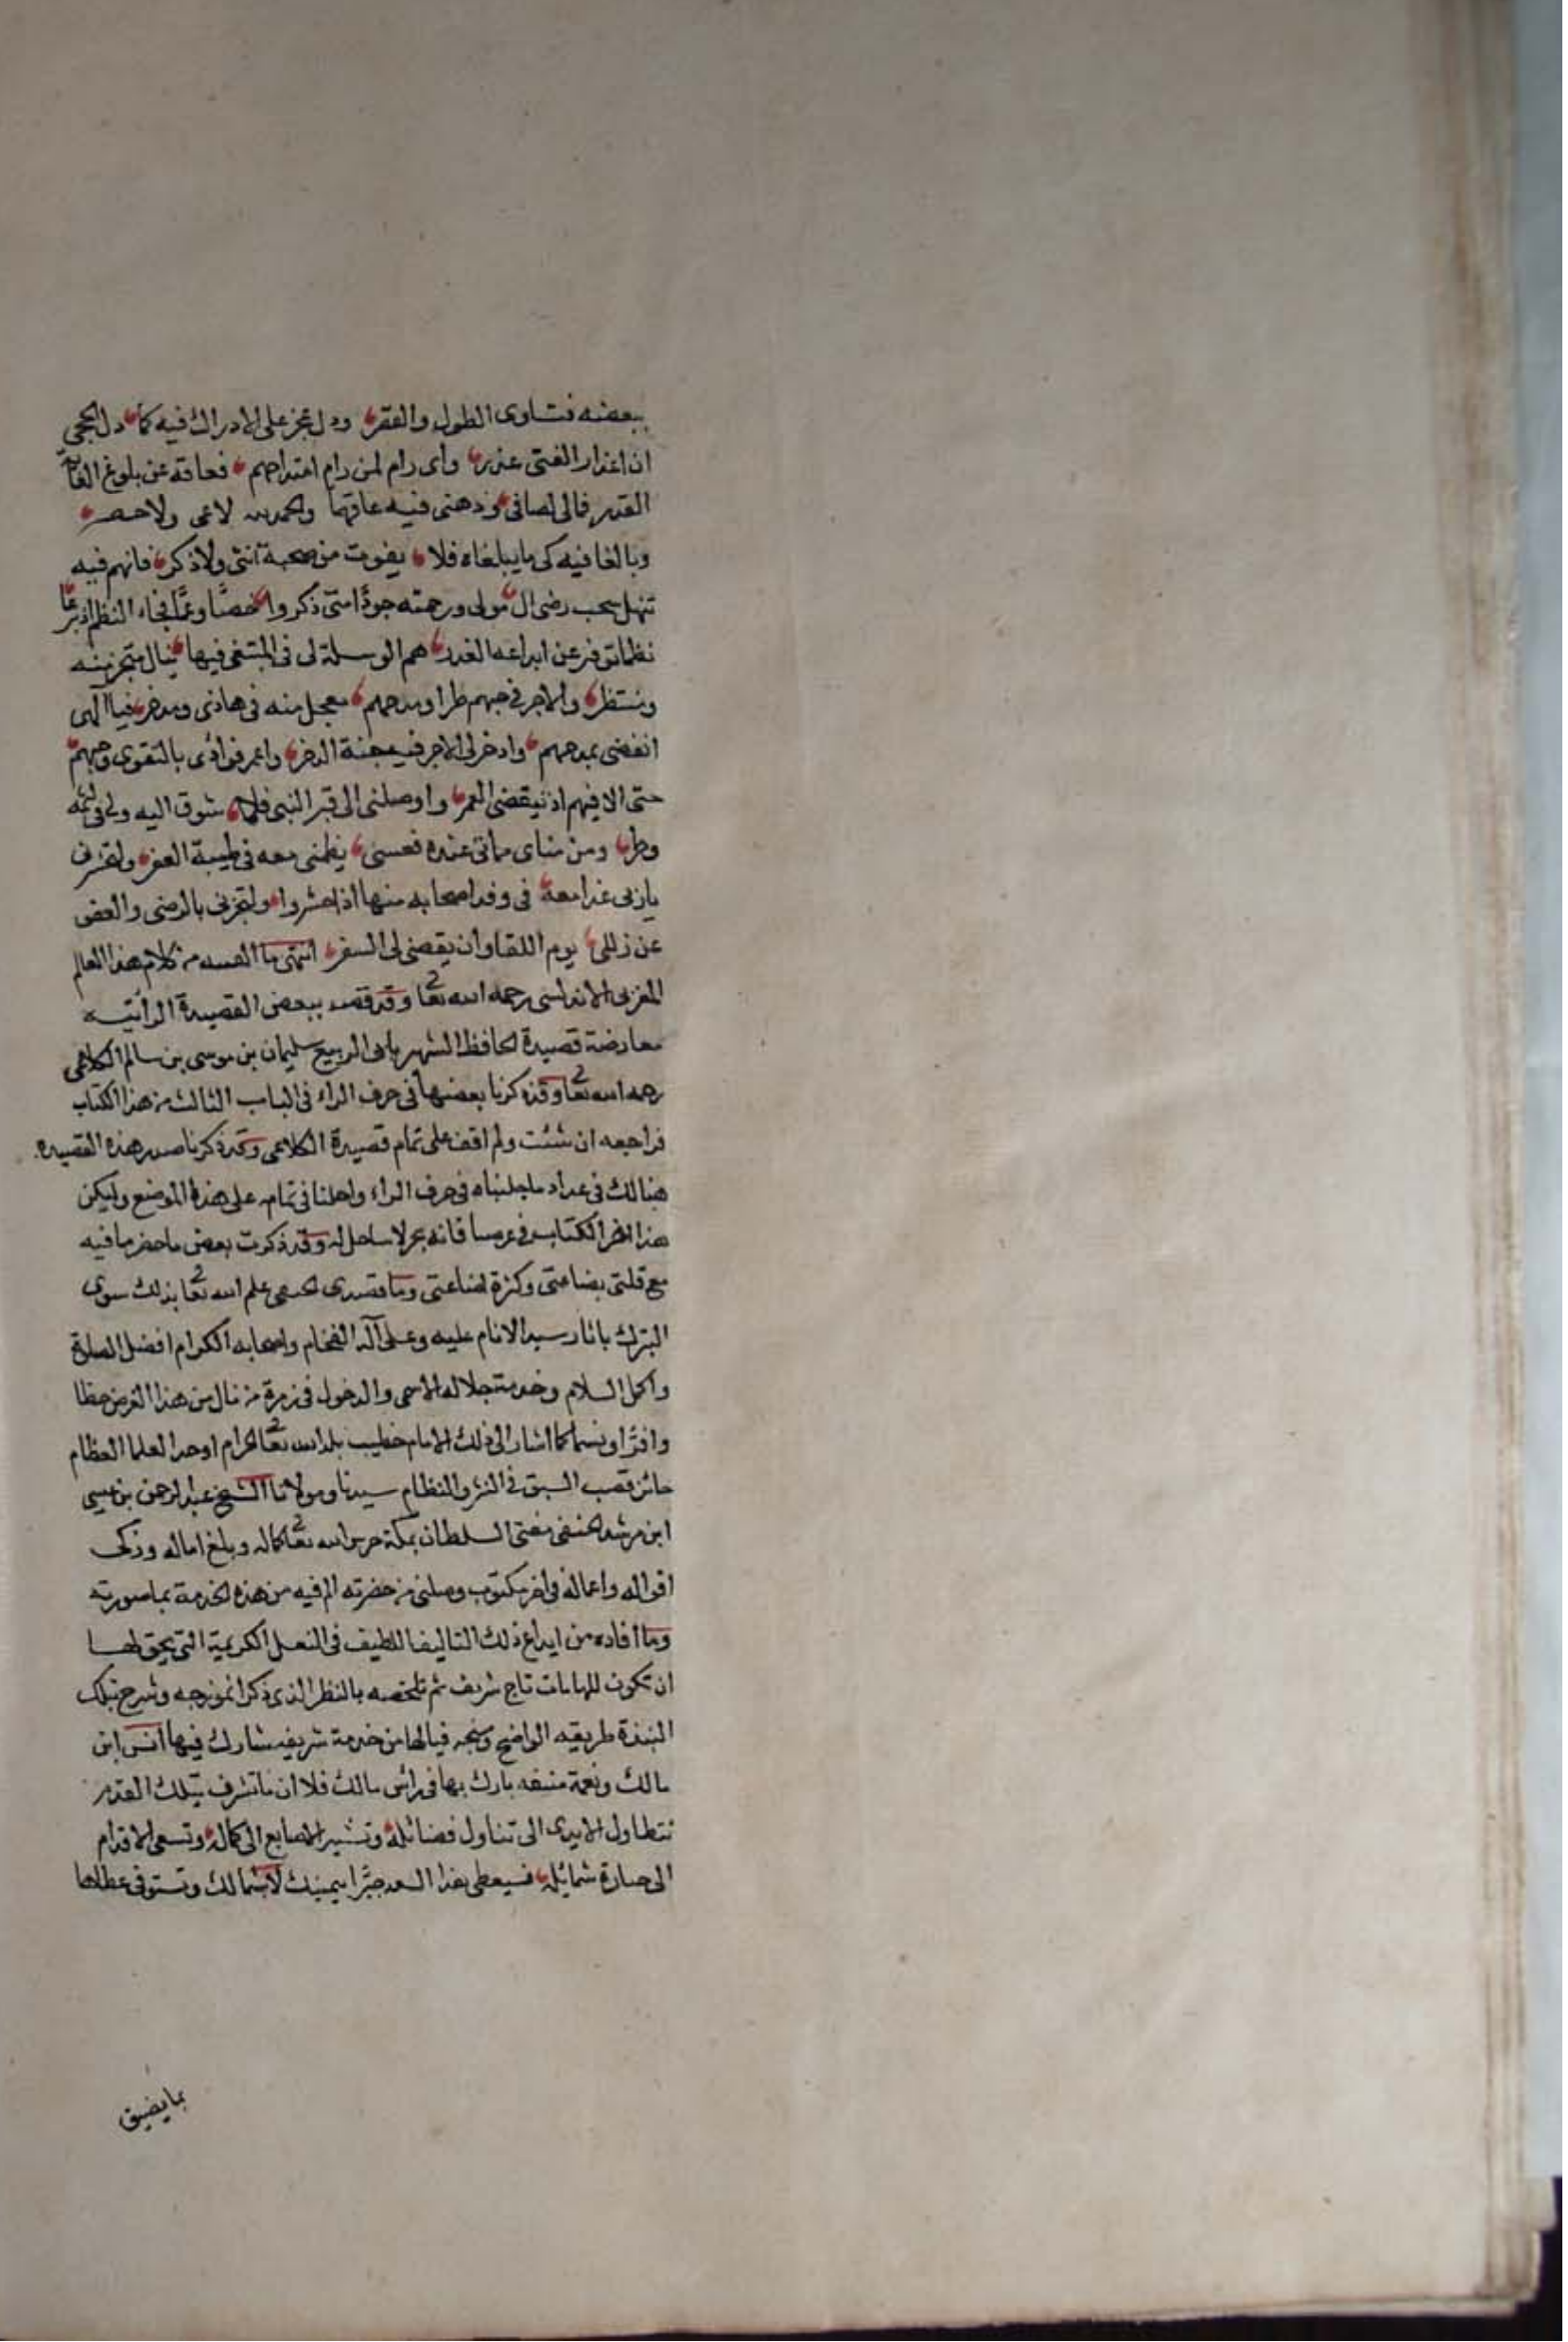 ببعضه فتساوى الطول والقصر ودل عجز على الادراك فيه كما دل الحجى
ان اعذار الفتى عذر واى رام لمن رام امتداحهم فعاقه عن بلوغ الغاية
القدر فالى لصافى وذهنى فيه عاقهما والحمد لله لاعى ولا حصر
وبالغا فيه كى ما يبلغاه فلا يفوت من صحبه انثى ولا ذكر فانهم فيه
تنهل سحب رضى المولى ورحمته جودا متى ذكروا خصا وعما فجاء النظم
نظما توفر عن ابداعه الغدر هم الوسيلة لى فى المبتغى فيها ينال منجز منه
ومنتظر والاجر فى حبهم طرا ومدحهم معجل منه فى هاذى ومدخر فيا الهى
انفعنى بمدحهم وادخر لى الاجر فيه جنة الدخر واعمر فوادى بالتقوى وحبهم
حتى الاقيهم اذ ينقضى العمر واوصلنى الى قبر النبى فلى شوق اليه ولى فى لثمه
وطر ومن مناى مماتى عنده فعسى يضمنى معه فى طيبة العفر ولتحشرن
يا ربى غدا معه فى وفد اصحابه منها اذا حشروا ولتجزنى بالرضى والعفو
عن زللى يوم اللقا وان يقضى لى السفر انتهى ما القسه من كلام هذا العالم
المغربى الاندلسى رحمه الله تعا وقد قصد ببعض القصيدة الرائية
معارضة قصيدة الحافظ الشهير بابى الربيع سليمان بن موسى بن سالم الكلاعى
رحمه الله تعا وقد ذكرنا بعضها فى حرف الراء فى الباب الثالث من هذا الكتاب
فراجعه ان شئت ولم اقف على تمام قصيدة الكلاعى وقد ذكرنا صدر هذه القصيده
هنالك فى عداد ما جلبناه فى حرف الراء واحلنا فى تمامه على هذا الموضع وليكن
هذا اخر الكتاب فانه بحر لا ساحل له وقد ذكرت بعض ما حضر ما فيه
مع قلتى بضاعتى وكثرة اضاعتى وما قصدى علم الله تعا بذلك سوى
التبرك باثار سيد الانام عليه وعلى آله الفخام واصحابه الكرام افضل الصلاة
واكمل السلام وخدمة جلاله الاسمى والدخول فى زمرة من نال من هذا الغرض حظا
وافرا وقسما كما اشار الى ذلك الامام خطيب بلد الله تعا الحرام اوحد العلما العظام
حائز قصب السبق فى النثر والنظام سيدنا ومولانا الشيخ عبد الرحمن بن عيسى
ابن مرشد الحنفى مفتى السلطان بمكة حرس الله تعا كماله وبلغ اماله وزكى
اقواله واعماله فى اخر مكتوب وصلنى من حضرته الم فيه من هذه الخدمة بما صورته
وما افاده من ابداع ذلك التاليف اللطيف فى النعل الكريمة التى يحق لها
ان تكون للهامات تاج شريف ثم تلخصه بالنظر الذى ذكر انموذجه وشرح بتلك
النبذة طريقه الواضح ومنهجه فيالها من خدمة شريفه شارك فيها انس ابن
مالك ونعمة منيفه بارك بها فى رأس مالك فلا ان ما تشرف بتلك القدم
تتطاول الايدى الى تناول فضائله وتشير الاصابع الى كماله وتسعى الاقدام
الى حيازة شمائله فسيعطى بهذا السعد جبرا بيمينك لا بشمالك وتستوفى عطاءها
بما يضيق